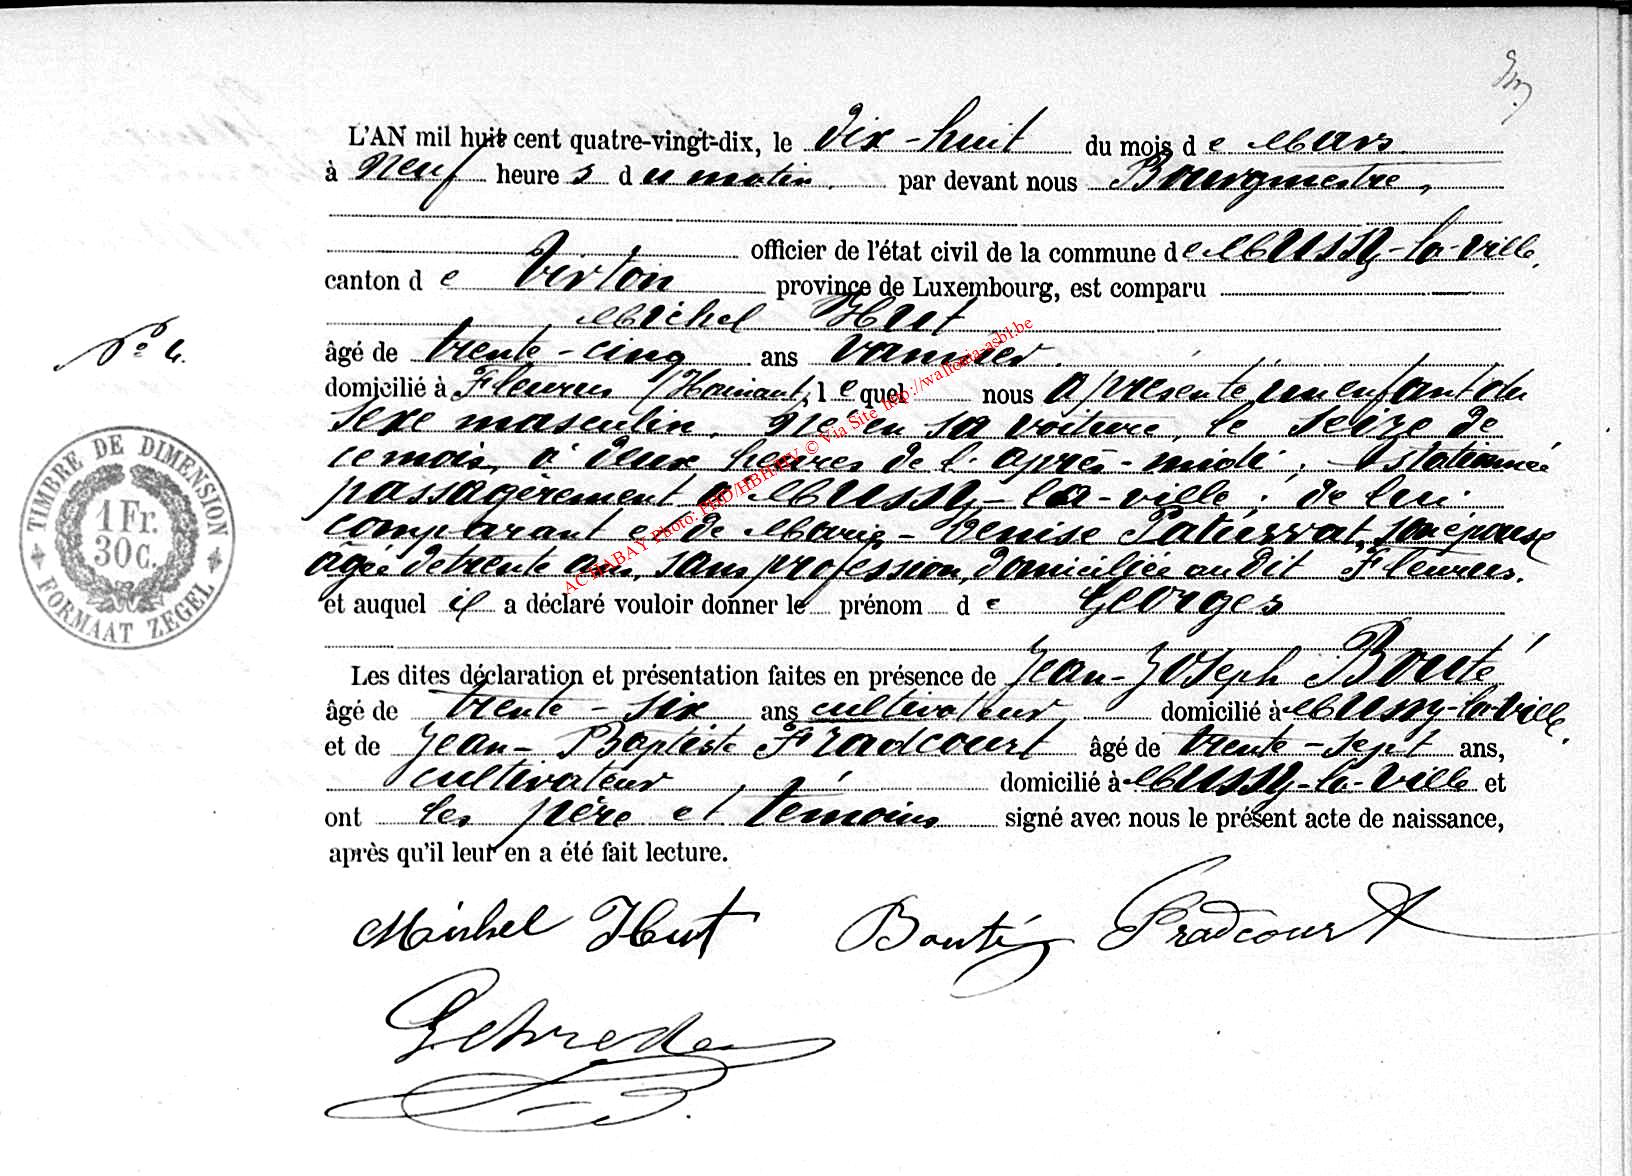 L'AN mil huit cent quatre-vingt-dix, le dix-huit du mois de Mars
à neuf heures du matin, par devant nous Bourgmestre,
officier de l'état civil de la commune de Mussy-la-ville,
canton de Virton province de Luxembourg, est comparu
Michel Hut
âgé de trente-cinq ans Vannier.
domicilié à Fleurus /Hainaut, lequel nous a présenté un enfant du
sexe masculin, né en sa voiture, le seize de
ce mois, à deux heures de l'après-midi, stationnée
passagèrement à Mussy-la-ville, de lui
comparant et de Marie-Denise son épouse
âgée de trente ans, sans profession, domiciliée au dit Fleurus.
et auquel il a déclaré vouloir donner le prénom de Georges
Les dites déclaration et présentation faites en présence de Jean-Joseph Bouté
âgé de trente-six ans cultivateur, domicilié à Mussy-la-Ville,
et de Jean-Baptiste Fradcourt âgé de trente-sept ans,
cultivateur, domicilié à Mussy-la-Ville et
ont les père et témoins signé avec nous le présent acte de naissance,
après qu'il leur en a été fait lecture.
Michel Hut Bouté Fradcourt
N° 4.
TIMBRE DE DIMENSION
1 Fr.
30 C.
FORMAAT ZEGEL
AC HABAY Photo: PHD/HBH/HV © Via Site http://wallonia-asbl.be